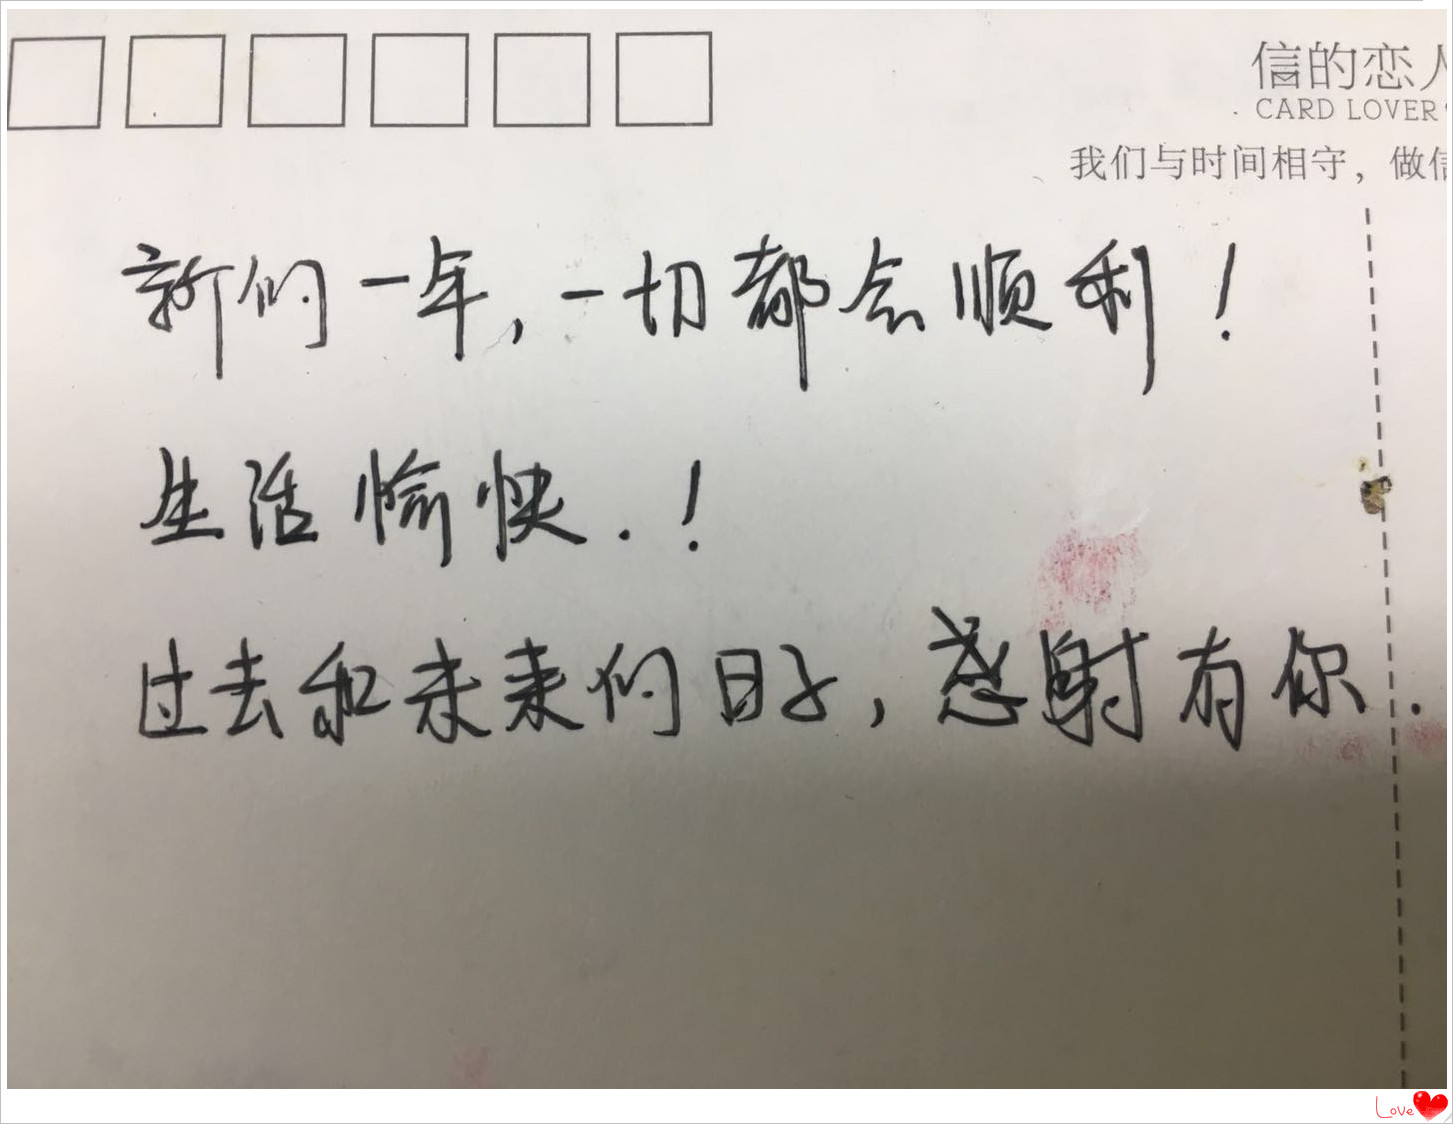 信的恋人
CARD LOVER
我们与时间相守，做信
新的一年，一切都会顺利！
生活愉快.！
过去和未来的日子，感谢有你.
Love